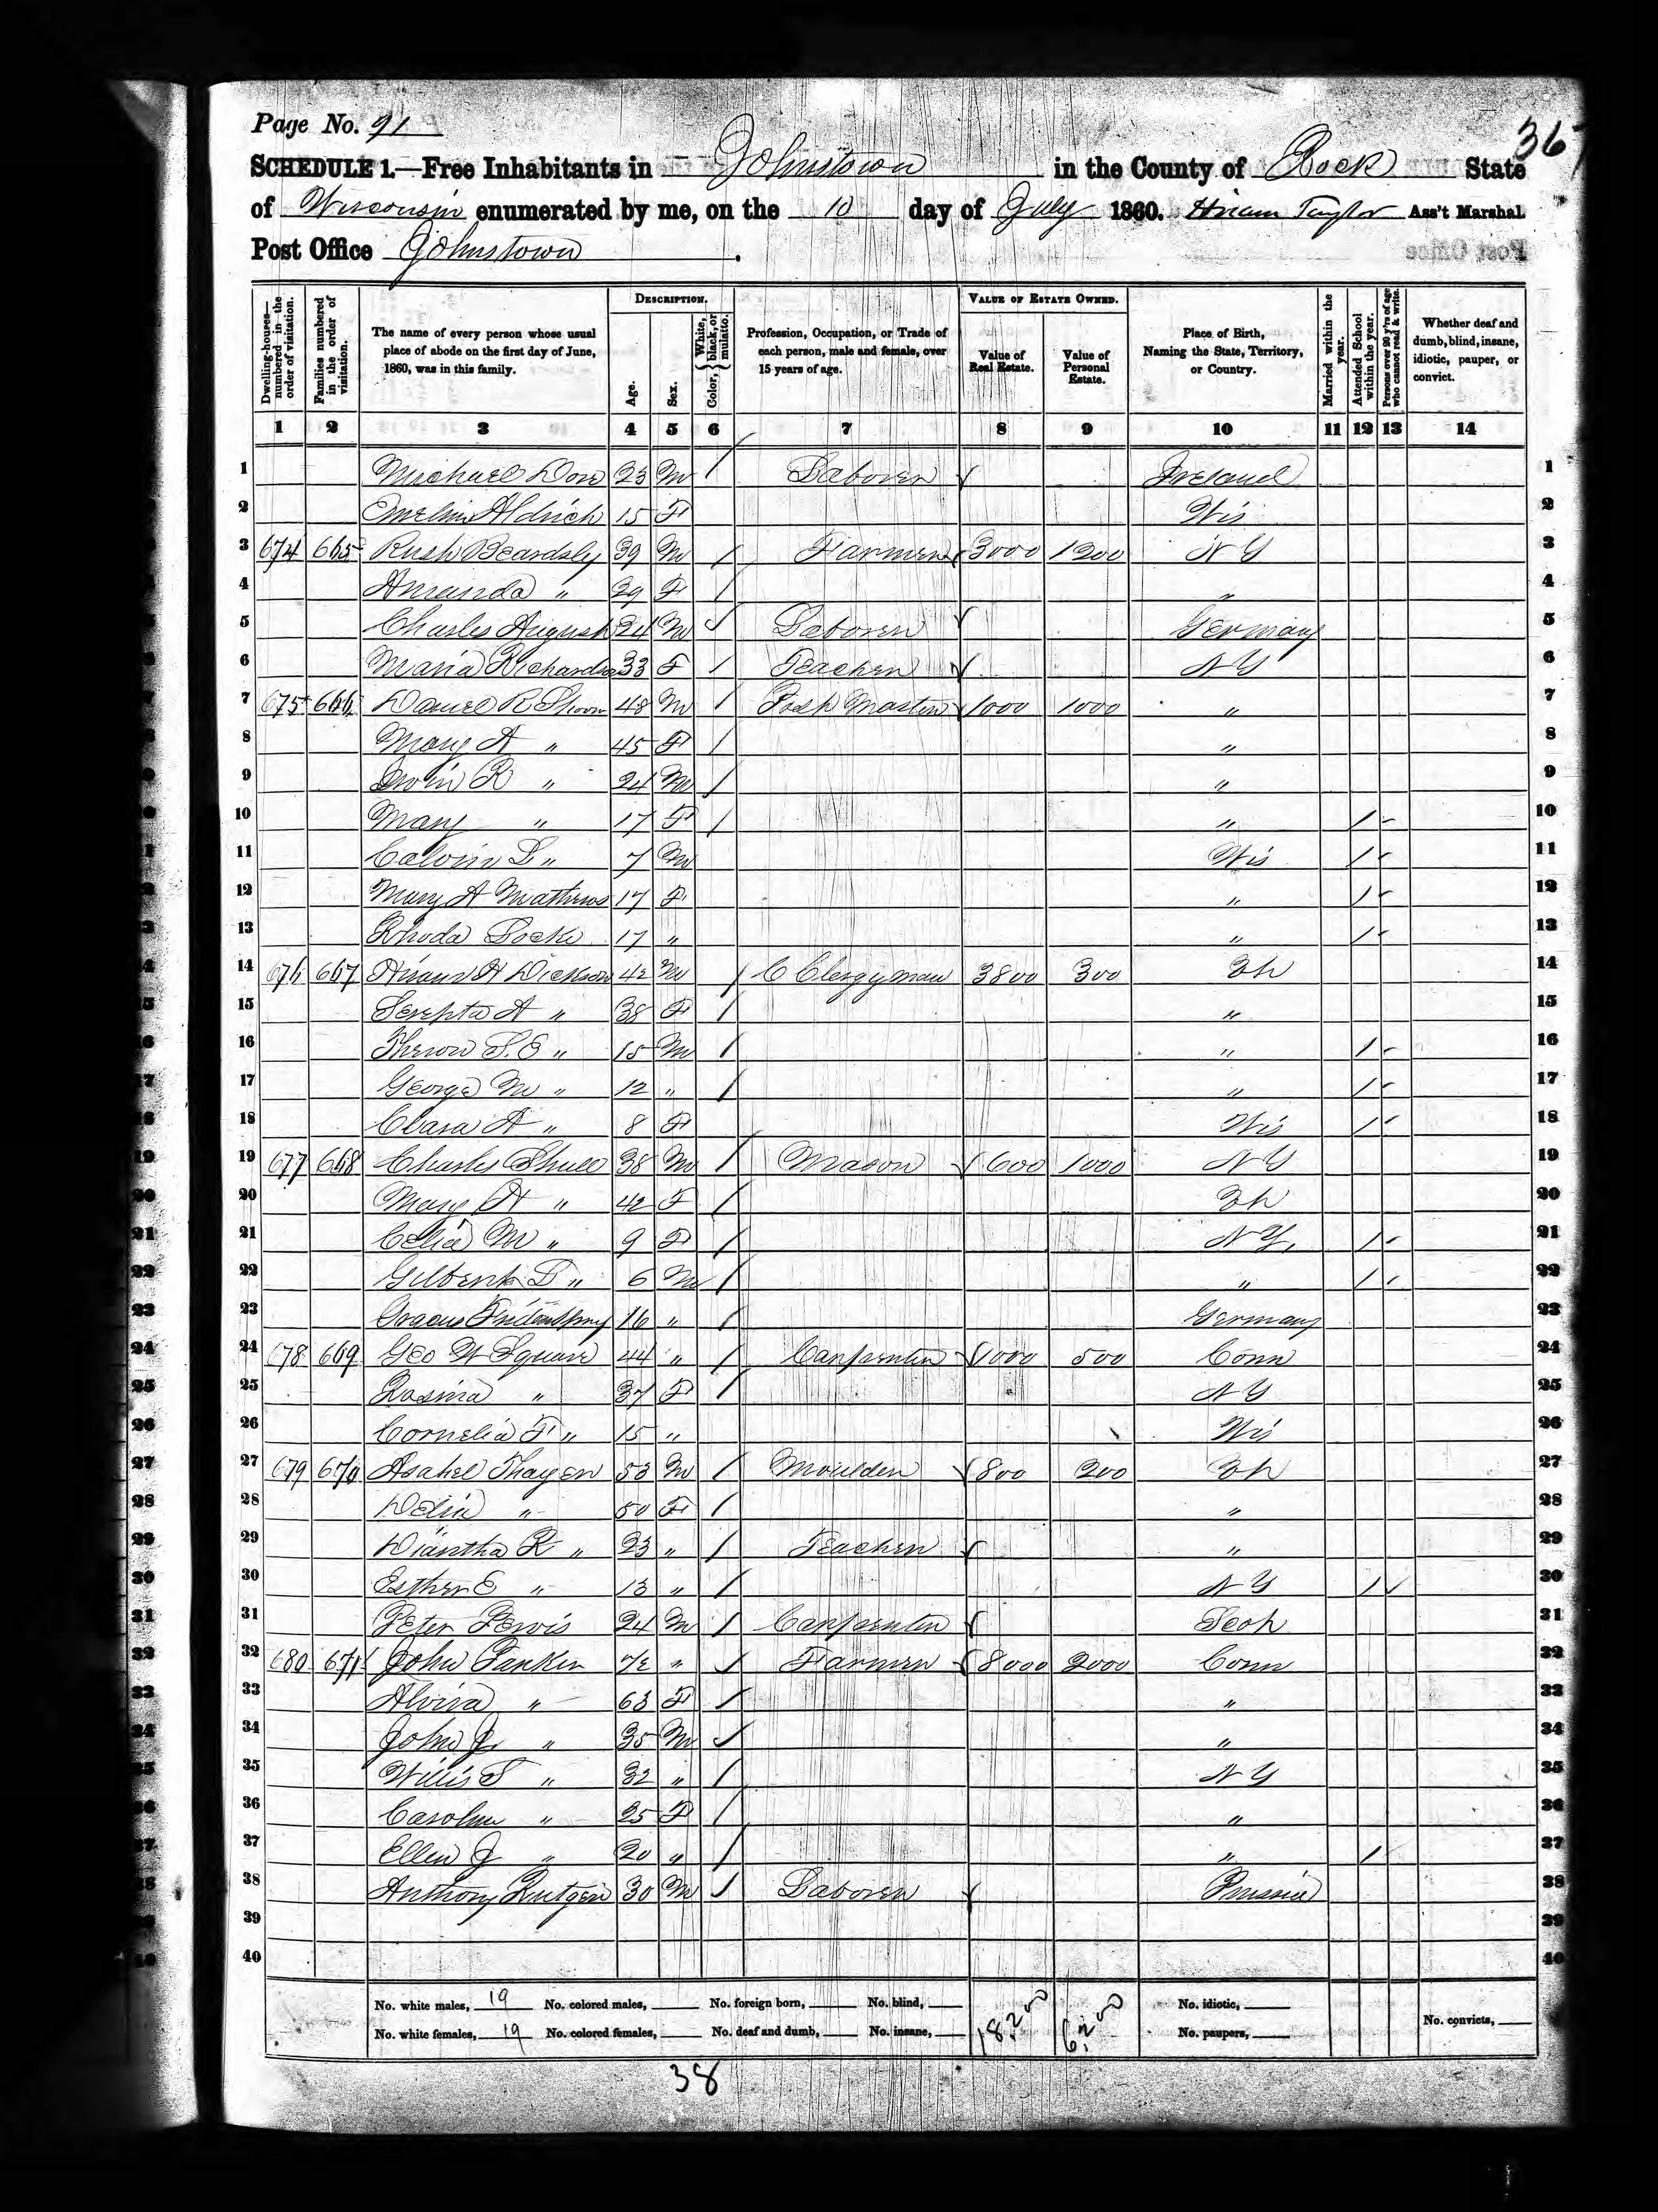 Page No. 91
367
SCHEDULE 1.—Free Inhabitants in Johnstown in the County of Rock State
of Wisconsin enumerated by me, on the 10 day of July 1860. Hiram Taylor Ass't Marshal.
Post Office Johnstown.
DESCRIPTION. VALUE OF ESTATE OWNED.
Dwelling-houses—numbered in the order of visitation. Families numbered in the order of visitation. The name of every person whose usual place of abode on the first day of June, 1860, was in this family. Age. Sex. Color, White, black, or mulatto. Profession, Occupation, or Trade of each person, male and female, over 15 years of age. Value of Real Estate. Value of Personal Estate. Place of Birth, Naming the State, Territory, or Country. Married within the year. Attended School within the year. Persons over 20 y'rs of age who cannot read & write. Whether deaf and dumb, blind, insane, idiotic, pauper, or convict.
1 2 3 4 5 6 7 8 9 10 11 12 13 14
1 Michael 23 M / Laborer Ireland 1
2 Emeline Aldrich 15 F Wis 2
3 674 665 Rush Beardsly 39 M / Farmer 3000 1200 N Y 3
4 Amanda " 29 F / " 4
5 Charles August 24 M / Laborer Germany 5
6 Maria Richardson 33 F / Teacher N Y 6
7 675 666 Daniel R 48 M / Post Master 1000 1000 " 7
8 Mary A " 45 F / " 8
9 R " 24 M / " 9
10 Mary " 17 F / " / 10
11 Calvin L " 7 M Wis / 11
12 Mary A Mathews 17 F " / 12
13 Rhoda Locke 17 " " / 13
14 676 667 Hiram H Dickson 42 M / C Clergyman 3800 300 14
15 Serepta A " 38 F / " 15
16 Theron S. E " 15 M / " / 16
17 George M " 12 " / " / 17
18 Clara A " 8 F Wis / 18
19 677 668 Charles Shull 38 M / Mason 600 1000 N Y 19
20 Mary A " 42 F / 20
21 Celia M " 9 F / N Y, / 21
22 Gilbert D " 6 M / " / 22
23 16 " / Germany 23
24 678 669 Geo W Squire 44 " / Carpenter 1000 500 Conn 24
25 Rosina " 37 F / N Y 25
26 Cornelia F " 15 " Wis 26
27 679 670 Asahel Thayer 53 M / Moulder 800 200 27
28 Delia " 50 F / " 28
29 Diantha R " 23 " / Teacher " 29
30 Esther E " 13 " / N Y / 30
31 Peter Lewis 24 M / Carpenter Scot 31
32 680 671 John Larkin 72 " / Farmer 8000 2000 Conn 32
33 Alvira " 63 F / " 33
34 John J " 35 M / " 34
35 Willis S " 32 " / N Y 35
36 Caroline " 25 F / " 36
37 Ellen J " 20 " / " / 37
38 Anthony Rutgen 30 M / Laborer Prussia 38
39 39
40 40
No. white males, 19 No. colored males, No. foreign born, No. blind, No. idiotic,
No. white females, 19 No. colored females, No. deaf and dumb, No. insane, 18200 6200 No. paupers, No. convicts,
38